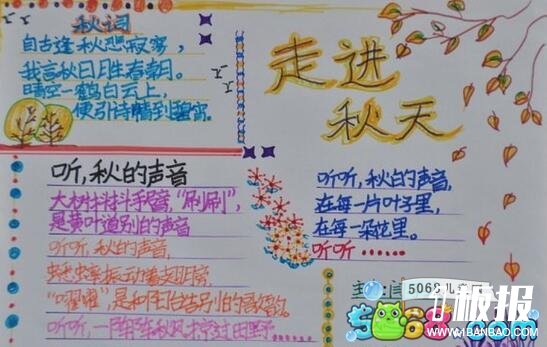 秋词
自古逢秋悲寂寥，
我言秋日胜春朝。
晴空一鹤白云上，
便引诗情到碧霄。
走进
秋天
听，秋的声音
大树抖抖手臂，“刷刷”，
是黄叶道别的声音
听听，秋的声音，
蟋蟀振动翅膀
“㘗㘗”，是和阳台告别的歌韵。
听听，一阵阵秋风掠过田野
听听，秋的声音，
在每一片叶子里，
在每一朵花里。
听听……
5068儿童
板报
5068.com
WWW.1BANBAO.COM